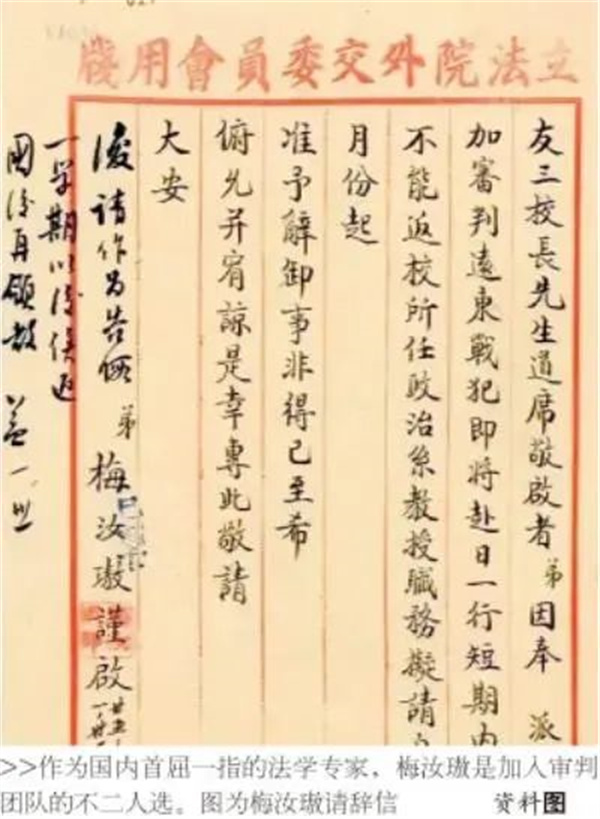 立法院外交委員會用牋
友三校長先生道席敬啟者弟因奉 派
加審判遠東戰犯即將赴日一行短期內
不能返校所任政治系教授職務擬請
月份起
准予解卸事非得已至希
俯允并宥諒是幸專此敬請
大安
弟 梅汝璈謹啟
復請作為告假
一學期以後俟返
國後再領教
>>作为国内首屈一指的法学专家，梅汝璈是加入审判
团队的不二人选。图为梅汝璈请辞信 资料图